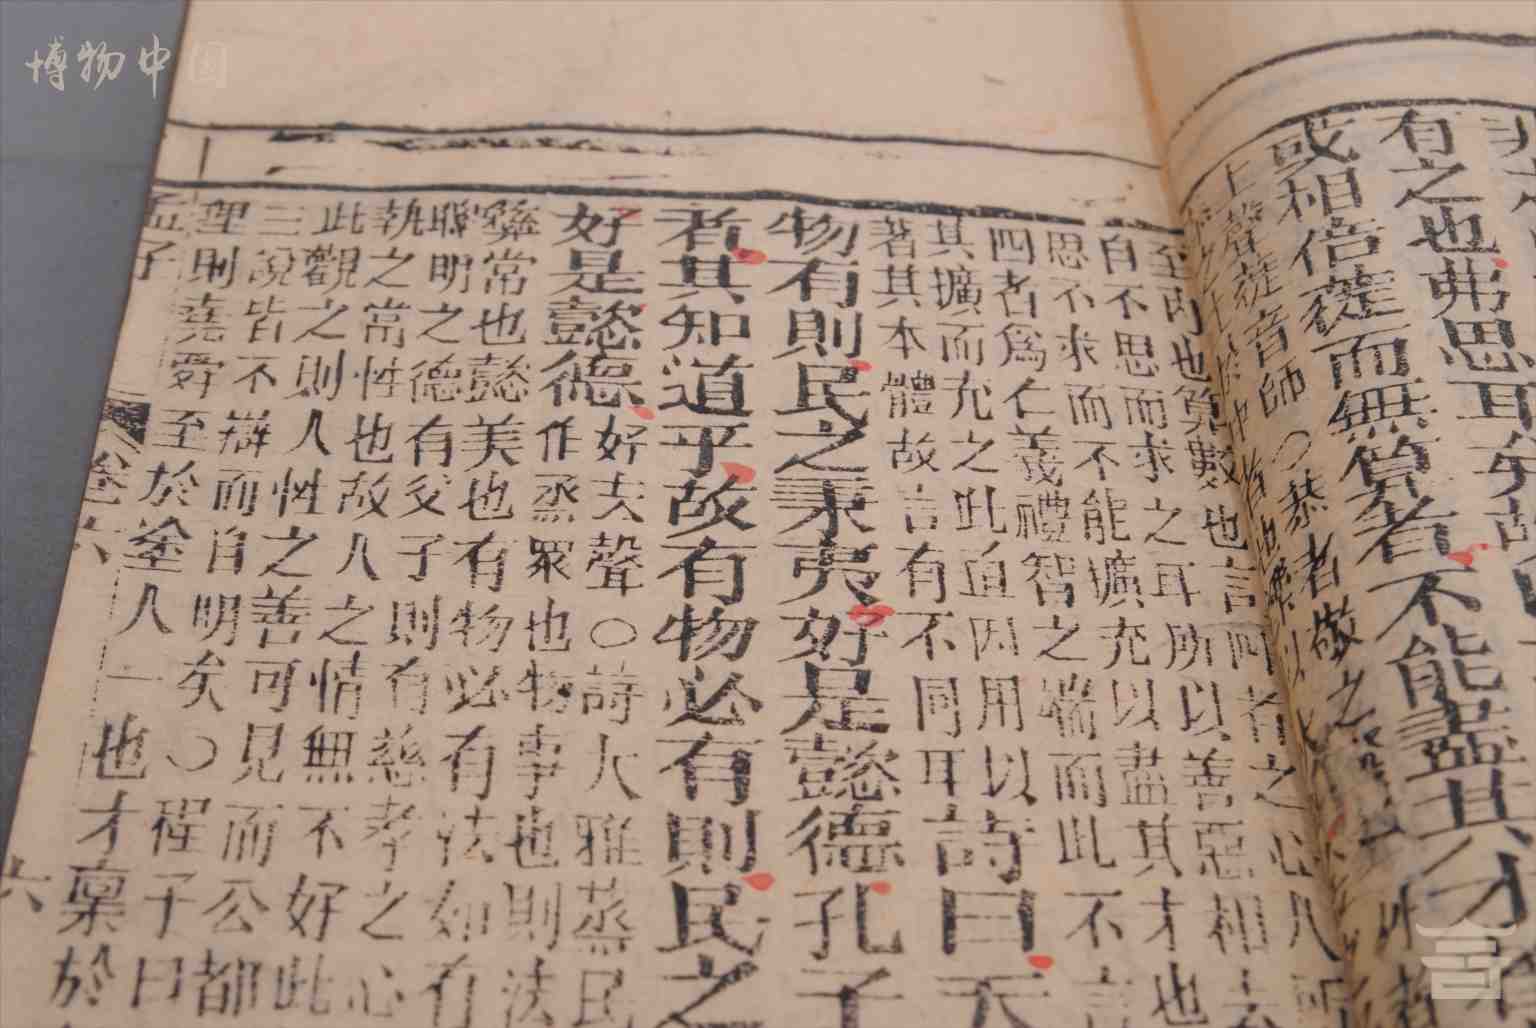 有之也弗思耳矣故
或相倍蓰而無算者不能盡其才
上聲蓰音師○恭者敬之
至內也算數也言四者之心人所
自不思而求之耳所以善惡相去
思不求而不能擴充以盡其才也
四者為仁義禮智之端而此不言
其擴而充之此直因用以
著其本體故言有不同耳
詩曰天
物有則民之秉夷好是懿德孔子
者其知道乎故有物必有則民之
好是懿德
好去聲○詩大雅蒸民
作烝眾也物事也則法
彝常也懿美也有物必有法如有
聰明之德有父子則有慈孝之心
執之常性也故人之情無不好此
此觀之則人性之善可見而公都
三說皆不辯而自明矣○程子曰
理則堯舜至於塗人一也才稟於
孟子 卷六 六
博物中国